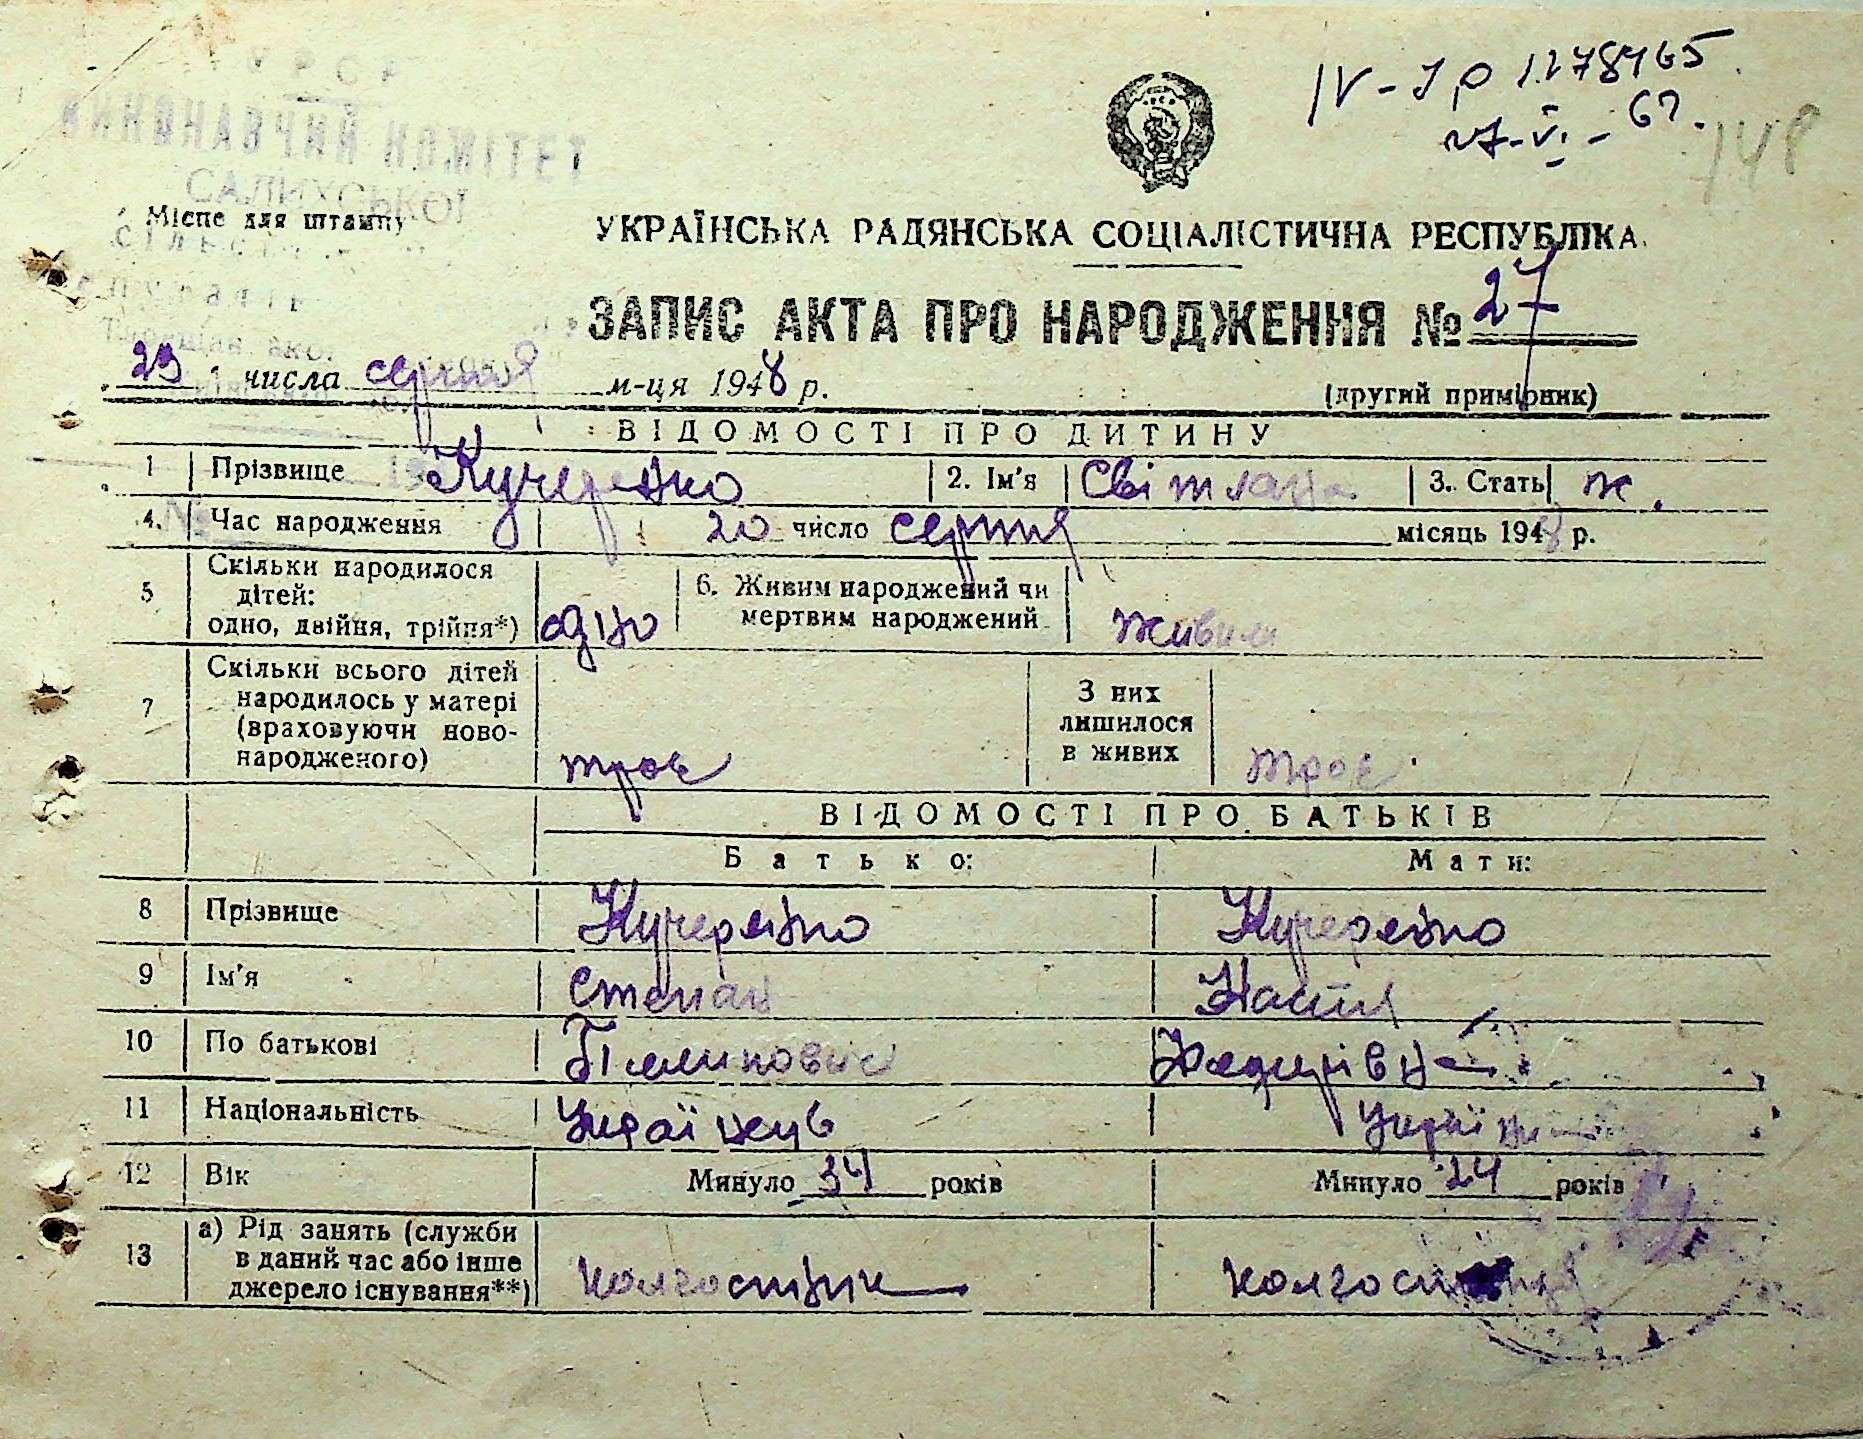 УРСР
ВИКОНАВЧИЙ КОМІТЕТ
Місце для штампу
148
УКРАЇНСЬКА РАДЯНСЬКА СОЦІАЛІСТИЧНА РЕСПУБЛІКА
ЗАПИС АКТА ПРО НАРОДЖЕННЯ № 27
23 числа серпня м-ця 1948 р.
(другий примірник)
ВІДОМОСТІ ПРО ДИТИНУ
1 Прізвище Кучеренко 2. Ім'я Світлана 3. Стать ж.
4. Час народження 20 число серпня місяць 1948 р.
5 Скільки народилося дітей: одно, двійня, трійня*) одно 6. Живим народжений чи мертвим народжений живим
7 Скільки всього дітей народилось у матері (враховуючи новонародженого) троє З них лишилося в живих троє
ВІДОМОСТІ ПРО БАТЬКІВ
Батько: Мати:
8 Прізвище Кучеренко Кучеренко
9 Ім'я Степан Настя
10 По батькові
11 Національність
12 Вік Минуло 34 років Минуло 24 років
13 а) Рід занять (служби в даний час або інше джерело існування**) колгоспник колгоспниця